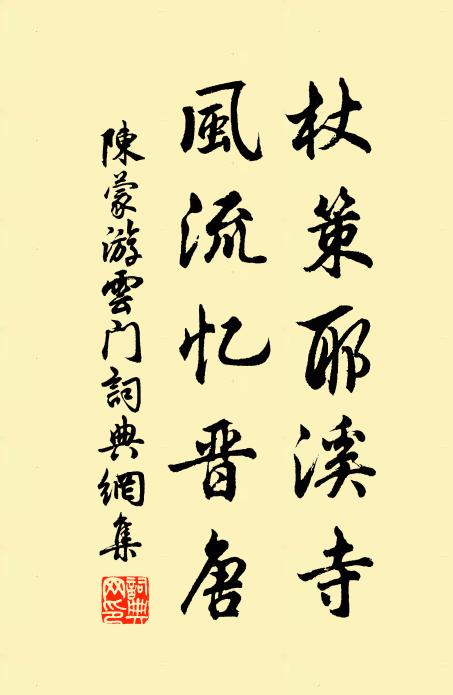 杖策耶溪寺
風流忆晋唐
陳蒙游雲門詞典網集
詞典網印